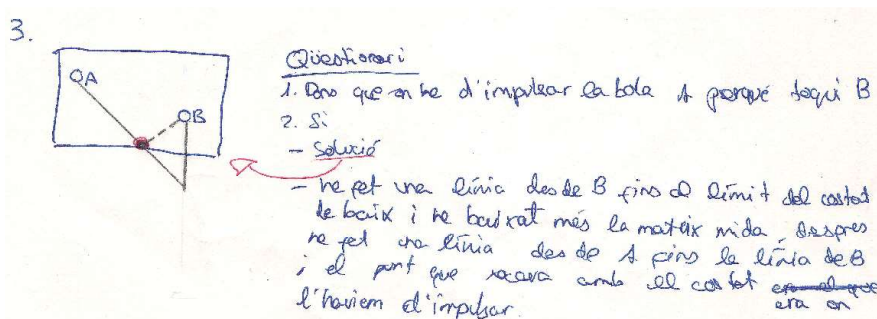 3.
A
B
Qüestionari
1. Dono que on he d'impulsar la bola A perquè toqui B
2. Si
- Solució
- he fet una línia desde B fins al límit del costat
de baix i he baixat més la mateix mida, despres
he fet una línia desde A fins la línia de B
i el punt que tocava amb el costat era el que
era on
l'haviem d'impulsar.